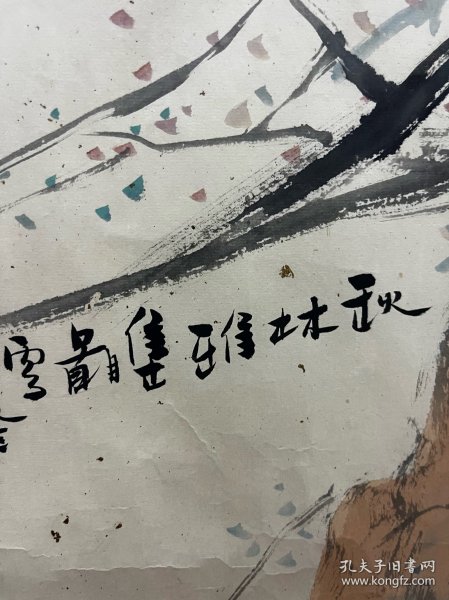 秋林雅集
雪
孔夫子旧书网
www.kongfz.com